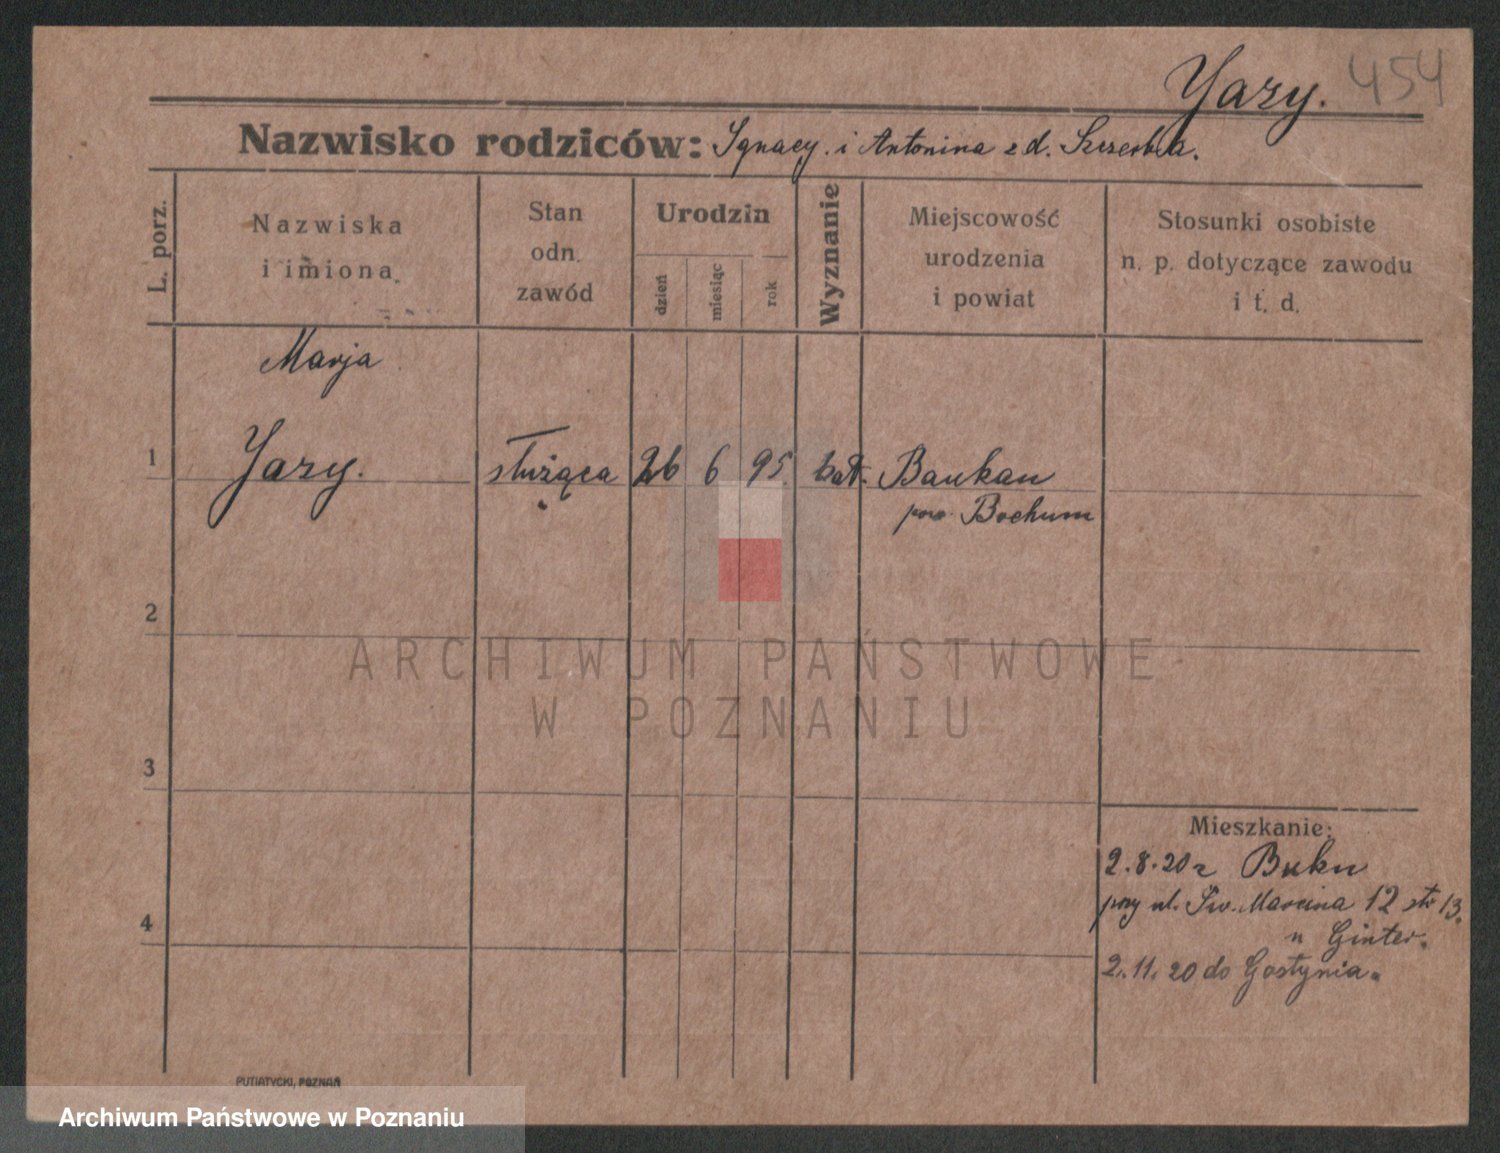 Yazy. 454
Nazwisko rodziców: Ignacy. i Antonina z d. Szczerbka.
L. porz.
Nazwiska
i imiona.
Stan
odn.
zawód
Urodzin
dzień
miesiąc
rok
Wyznanie
Miejscowość
urodzenia
i powiat
Stosunki osobiste
n. p. dotyczące zawodu
i t. d.
Marja
1 Yazy. służąca 26 6 95. kat. Baukau
pow. Bochum
2
3
4
Mieszkanie:
2.8.20 r Buku
przy ul. Św. Marcina 12 13.
u Ginter.
2.11.20 do Gostynia.
PUTIATYCKI, POZNAŃ
ARCHIWUM PAŃSTWOWE
W POZNANIU
Archiwum Państwowe w Poznaniu